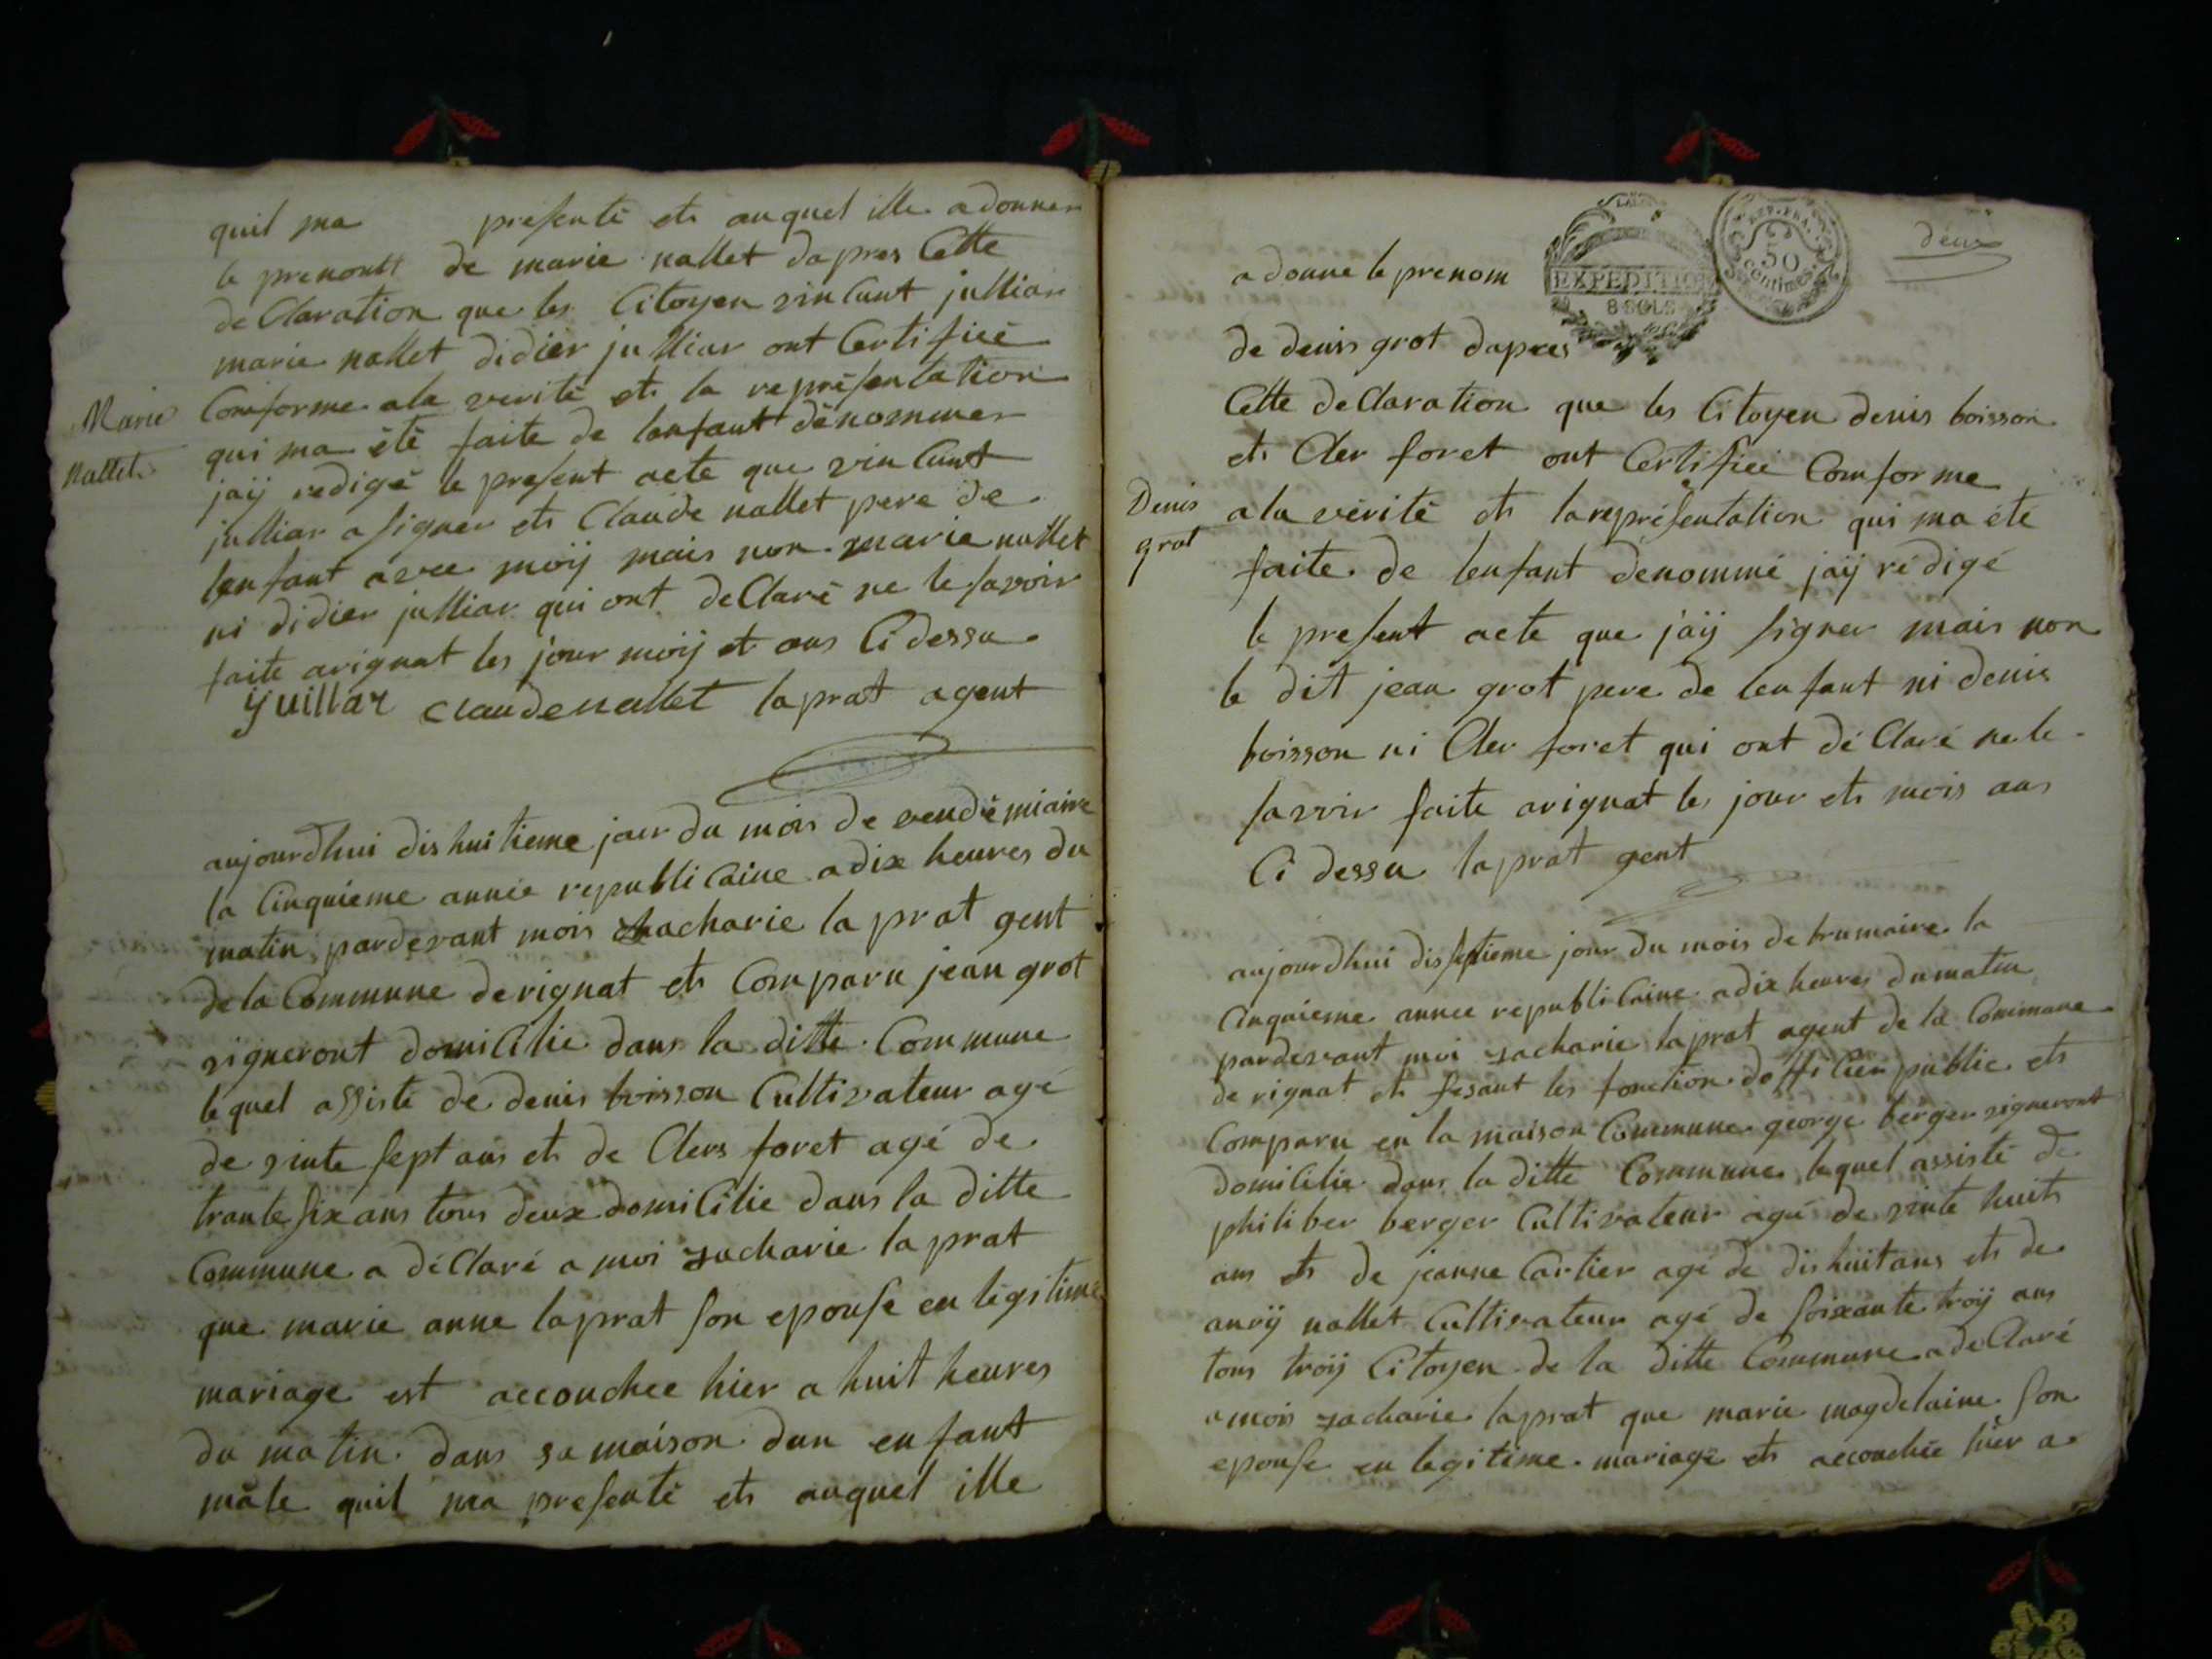 quil ma presenté et auquel ille a donner
le prenom de marie nallet dapres Cette
deClaration que les Citoyen vincunt julliar
marie nallet didier julliar ont Certifiéé
Comforme ala verité et la representation
Marie
nallet
qui ma été faite de lenfant dénommer
jaÿ redigé le present acte que vin Cunt
julliar a signer et Claude nallet pere de
lenfant avec moÿ mais non marie nallet
ni didier julliar qui ont deClaré ne le savoir
faite arignat les jour moÿ et ans Ci dessu
yuillar claudenallet laprat agent
aujourdhui dishuitieme jour du mois de vendémiaire
la Cinquieme année republiCaine a dix heures du
matin pardevant mois zhacharie la prat gent
dela Commune derignat et Comparu jean grot
vigneront domiCilie dans la ditte Commune
le quel assisté de denis boisson Cultivateur agé
de vinte sept ans et de Clers foret agé de
trante six ans tous deux domiCilie dans la ditte
Commune a déClaré a moi zacharie la prat
que marie anne laprat son epouse en légitime
mariage est accouchee hier a huit heures
du matin dans sa maison dun enfant
mâle quil ma presenté et auquel ille
deux
EXPEDITION
8 SOLS
REP. FRA.
50
centimes
a donne le prenom
de denis grot dapres
Cette deClaration que les Citoyen denis boisson
et Cler foret ont Certifiéé Comforme
Denis
grot
a la vérité et la représentation qui ma été
faite de lenfant dénommé jaÿ rédigé
le present acte que jaÿ signer mais non
le dit jean grot pere de lenfant ni denis
boisson ni Cler foret qui ont dé Claré ne le
savoir faite arignat les jour et mois ans
Ci dessu laprat gent
aujourdhui disseptieme jour du mois de brumaire la
Cinquieme annee republiCaine a dix heures dumatin
pardevant moi zacharie laprat agent de la Commune
de rignat et fesant les fonction doffiCier public et
Comparu en la maison Commune george berger vigneront
domiCilie dans la ditte Commune lequel assisté de
philiber berger Cultivateur agé de vinte huit
ans et de jeanne Cartier agé de dishuitans et de
anrÿ nallet Cultivateur agé de soixante troÿ ans
tous troÿ Citoyen de la ditte Commune a deClaré
a mois zacharie laprat que marie magdelaine son
epouse en legitime mariage et accouchée hier a